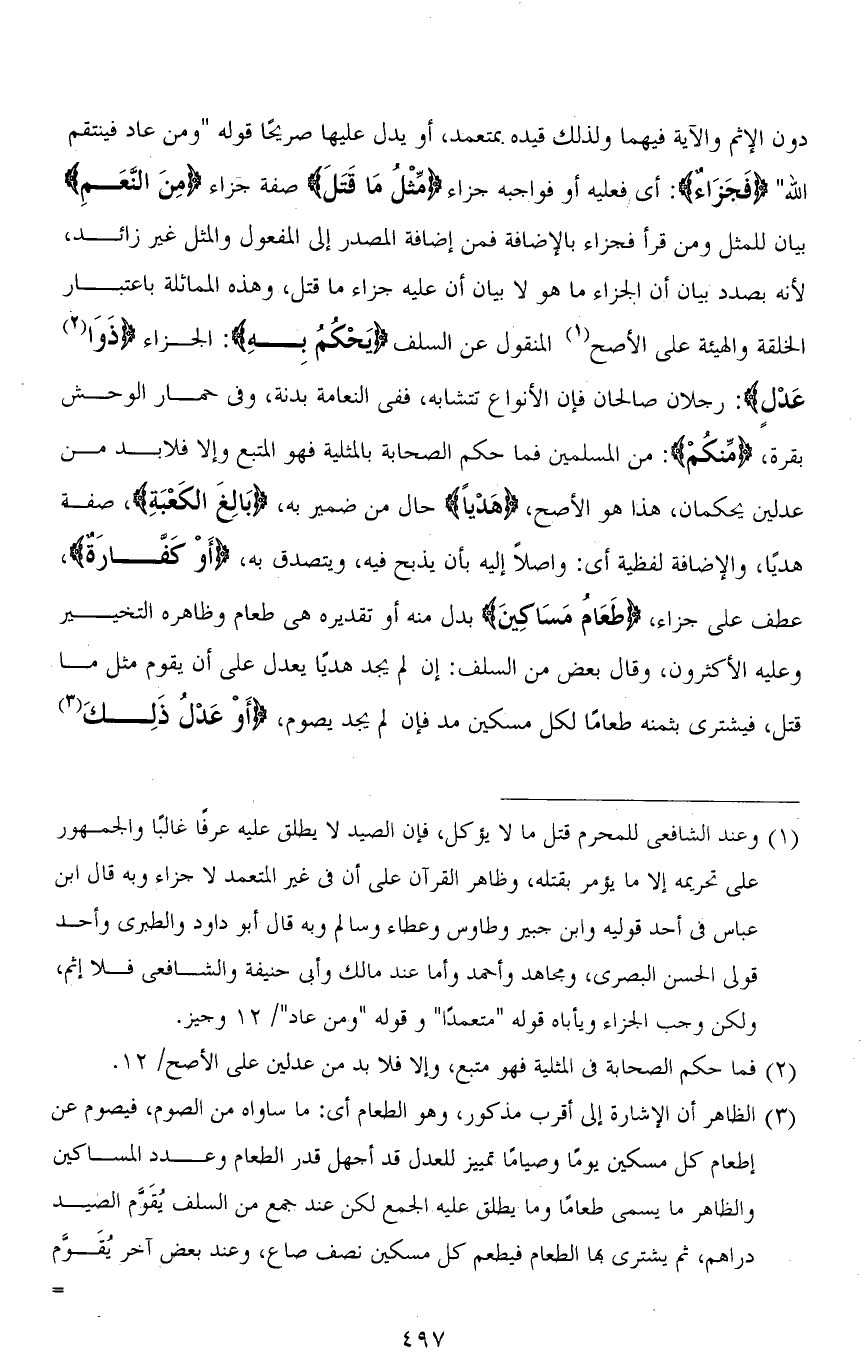 دون الإثم والآية فيهما ولذلك قيده بمتعمد، أو يدل عليها صريحًا قوله "ومن عاد فينتقم
الله" ﴿فَجَزَاءٌ﴾: أى فعليه أو فواجبه جزاء ﴿مِّثْلُ مَا قَتَلَ﴾ صفة جزاء ﴿مِنَ النَّعَمِ﴾
بيان للمثل ومن قرأ فجزاء بالإضافة فمن إضافة المصدر إلى المفعول والمثل غير زائد،
لأنه بصدد بيان أن الجزاء ما هو لا بيان أن عليه جزاء ما قتل، وهذه المماثلة باعتبار
الخلقة والهيئة على الأصح(١) المنقول عن السلف ﴿يَحْكُمُ بِهِ﴾: الجزاء ﴿ذَوَا(٢)
عَدْلٍ﴾: رجلان صالحان فإن الأنواع تتشابه، ففى النعامة بدنة، وفى حمار الوحش
بقرة، ﴿مِّنكُمْ﴾: من المسلمين فما حكم الصحابة بالمثلية فهو المتبع وإلا فلابد من
عدلين يحكمان، هذا هو الأصح، ﴿هَدْياً﴾ حال من ضمير به، ﴿بَالِغَ الكَعْبَةِ﴾، صفة
هديًا، والإضافة لفظية أى: واصلاً إليه بأن يذبح فيه، ويتصدق به، ﴿أَوْ كَفَّارَةٌ﴾،
عطف على جزاء، ﴿طَعَامُ مَسَاكِينَ﴾ بدل منه أو تقديره هى طعام وظاهره التخيير
وعليه الأكثرون، وقال بعض من السلف: إن لم يجد هديًا يعدل على أن يقوم مثل ما
قتل، فيشترى بثمنه طعامًا لكل مسكين مد فإن لم يجد يصوم، ﴿أَوْ عَدْلُ ذَلِكَ(٣)
(١) وعند الشافعى للمحرم قتل ما لا يؤكل، فإن الصيد لا يطلق عليه عرفًا غالبًا والجمهور
على تحريمه إلا ما يؤمر بقتله، وظاهر القرآن على أن فى غير المتعمد لا جزاء وبه قال ابن
عباس فى أحد قوليه وابن جبير وطاوس وعطاء وسالم وبه قال أبو داود والطبرى وأحد
قولى الحسن البصرى، ومجاهد وأحمد وأما عند مالك وأبى حنيفة والشافعى فلا إثم،
ولكن وجب الجزاء ويأباه قوله "متعمدًا" و قوله "ومن عاد"/ ١٢ وجيز.
(٢) فما حكم الصحابة فى المثلية فهو متبع، وإلا فلا بد من عدلين على الأصح/ ١٢.
(٣) الظاهر أن الإشارة إلى أقرب مذكور، وهو الطعام أى: ما ساواه من الصوم، فيصوم عن
إطعام كل مسكين يومًا وصيامًا تمييز للعدل قد أجهل قدر الطعام وعدد المساكين
والظاهر ما يسمى طعامًا وما يطلق عليه الجمع لكن عند جمع من السلف يُقَوَّم الصيد
دراهم، ثم يشترى بها الطعام فيطعم كل مسكين نصف صاع، وعند بعض آخر يُقَوَّم
=
٤٩٧